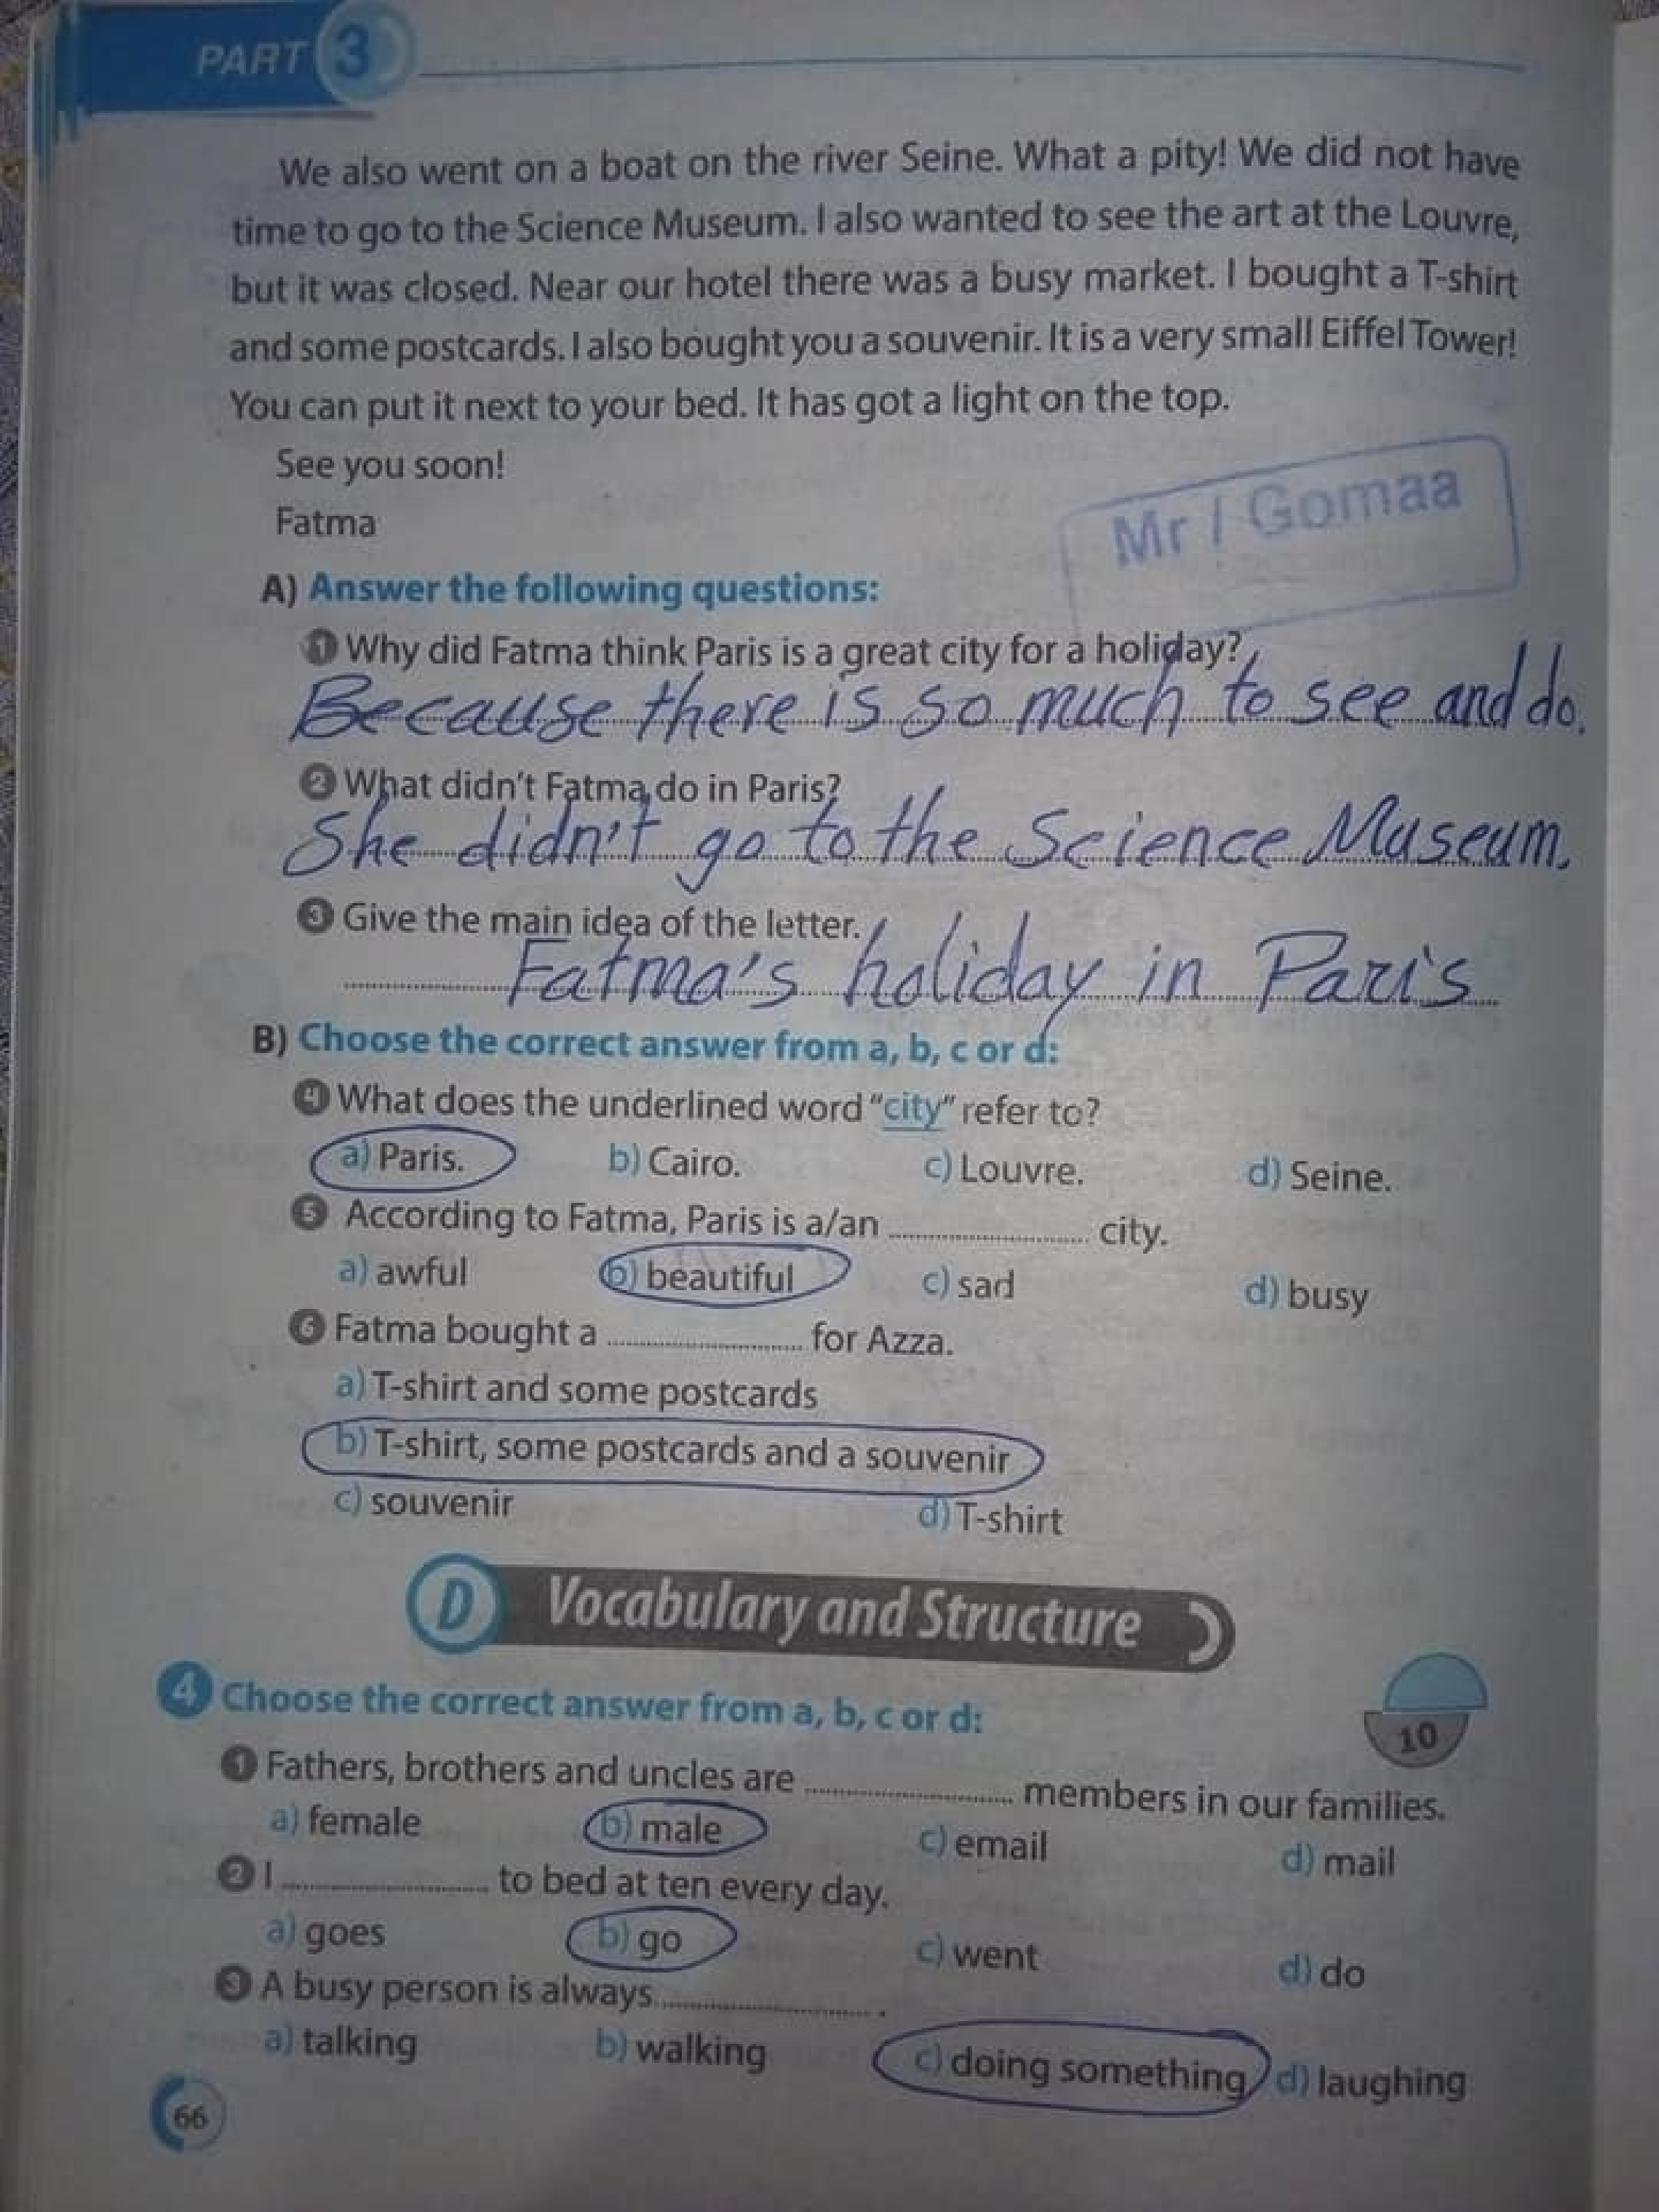 PART 3
We also went on a boat on the river Seine. What a pity! We did not have
time to go to the Science Museum. I also wanted to see the art at the Louvre,
but it was closed. Near our hotel there was a busy market. I bought a T-shirt
and some postcards. I also bought you a souvenir. It is a very small Eiffel Tower!
You can put it next to your bed. It has got a light on the top.
See you soon!
Fatma
Mr / Gomaa
A) Answer the following questions:
1 Why did Fatma think Paris is a great city for a holiday?
Because there is so much to see and do.
2 What didn't Fatma do in Paris?
She didn't go to the Science Museum.
3 Give the main idea of the letter.
Fatma's holiday in Paris
B) Choose the correct answer from a, b, c or d:
4 What does the underlined word "city" refer to?
a) Paris. b) Cairo. c) Louvre. d) Seine.
5 According to Fatma, Paris is a/an .................... city.
a) awful b) beautiful c) sad d) busy
6 Fatma bought a .................... for Azza.
a) T-shirt and some postcards
b) T-shirt, some postcards and a souvenir
c) souvenir d) T-shirt
D Vocabulary and Structure
4 Choose the correct answer from a, b, c or d:
10
1 Fathers, brothers and uncles are .................... members in our families.
a) female b) male c) email d) mail
2 I .................... to bed at ten every day.
a) goes b) go c) went d) do
3 A busy person is always .................... .
a) talking b) walking c) doing something d) laughing
66